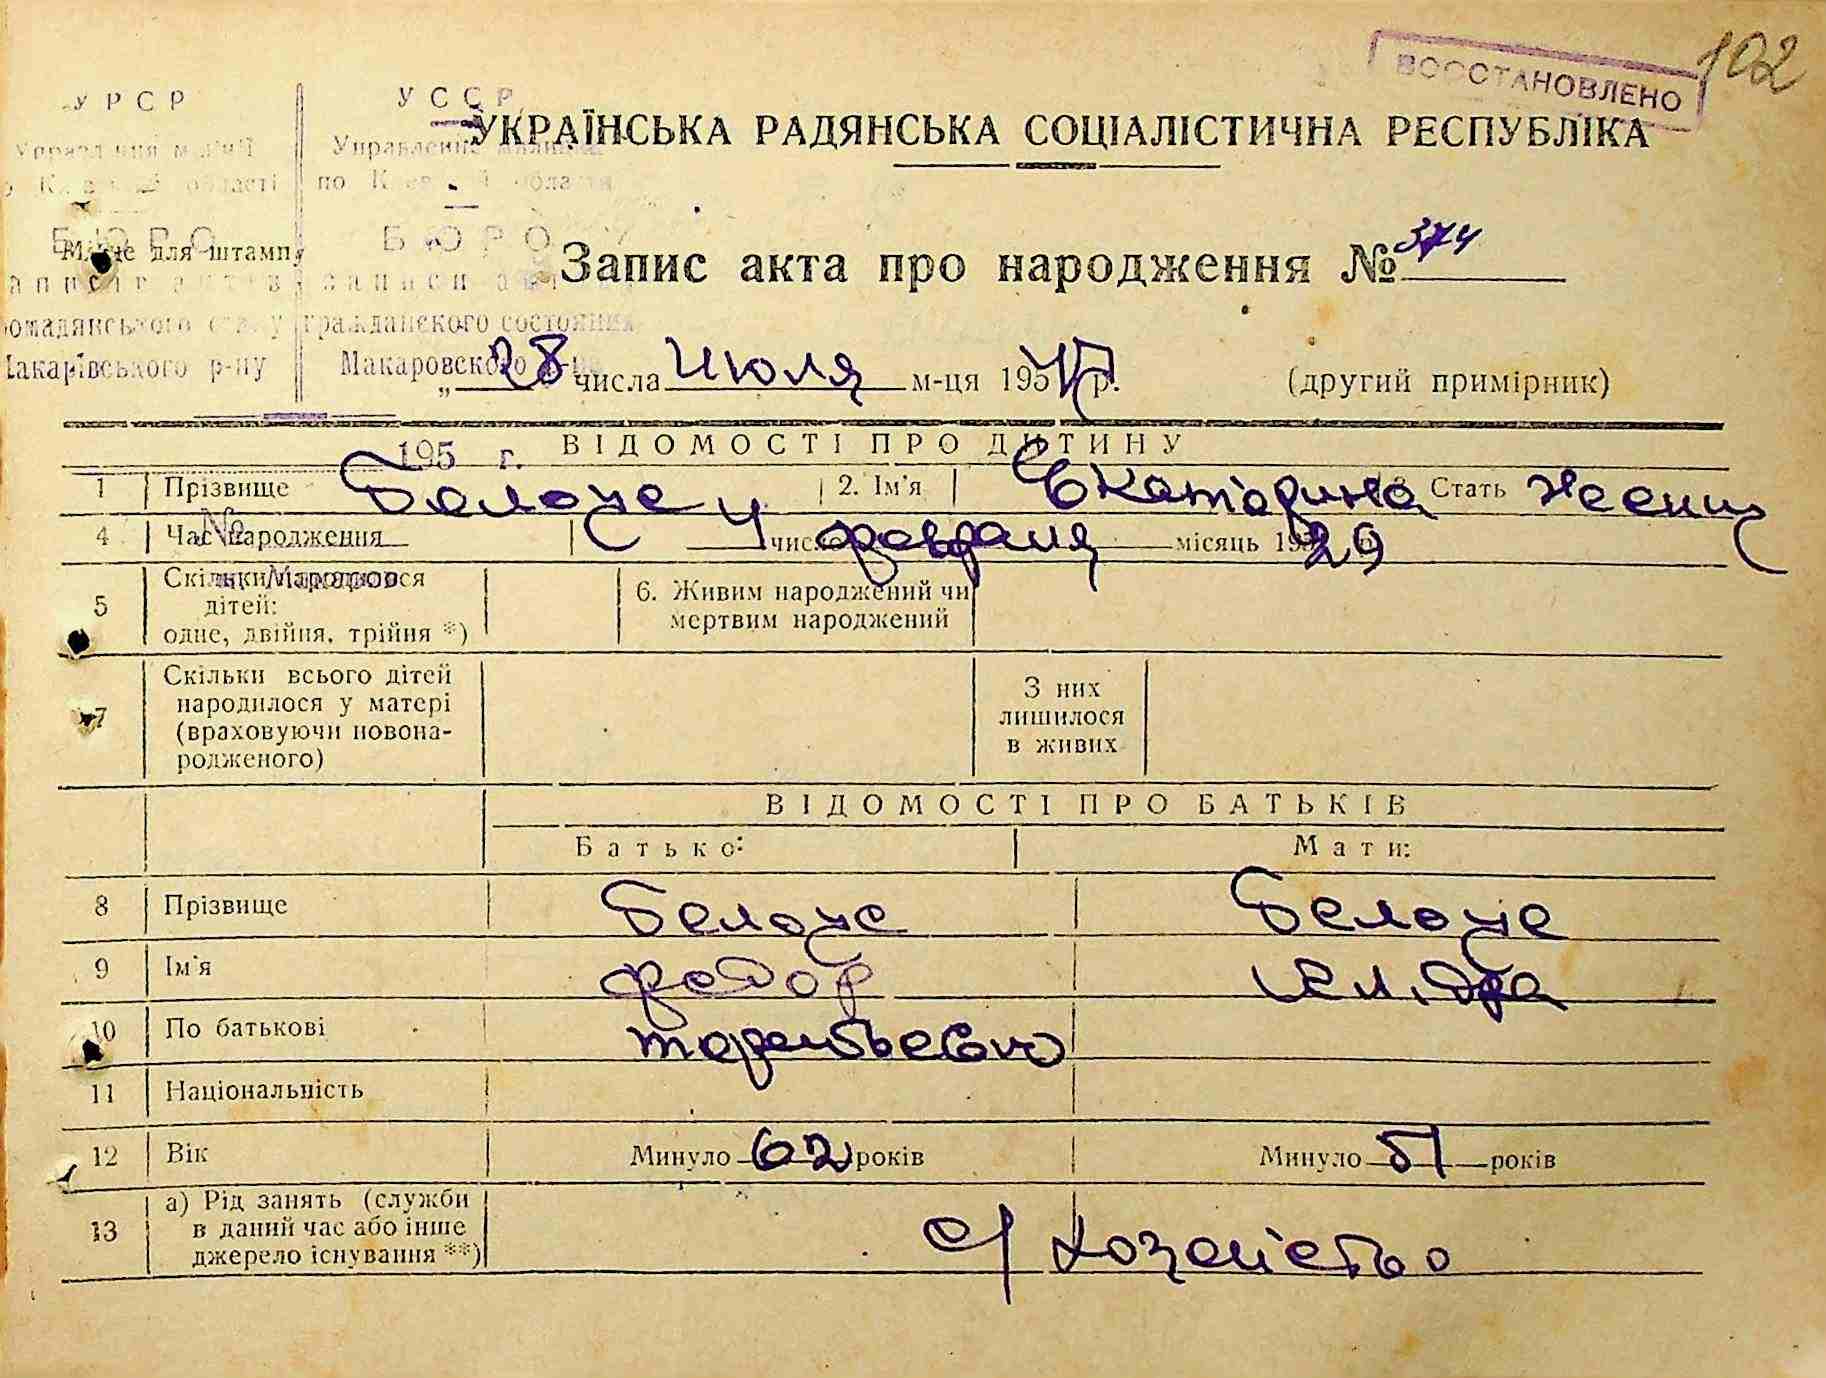 102
ВОССТАНОВЛЕНО
УРСР УССР
Управління міліції Управление милиции
по Київській області по Киевской области
УКРАЇНСЬКА РАДЯНСЬКА СОЦІАЛІСТИЧНА РЕСПУБЛІКА
БЮРО БЮРО
Місце для штампу
записів актів записи актов
громадянського стану гражданского состояния
Макарівського р-ну Макаровского р-на
Запис акта про народження № 374
„ 28 числа Июля м-ця 195 р. (другий примірник)
195 г.
ВІДОМОСТІ ПРО ДИТИНУ
1 Прізвище Белоус 2. Ім'я Екатерина 3. Стать женщ
№
4 Час народження 4 число февраля місяць 29
м. Макаров
5 Скільки народилося дітей: одне, двійня, трійня *) 6. Живим народжений чи мертвим народжений
7 Скільки всього дітей народилося у матері (враховуючи новонародженого) З них лишилося в живих
ВІДОМОСТІ ПРО БАТЬКІВ
Батько: Мати:
8 Прізвище Белоус Белоус
9 Ім'я Федор
10 По батькові
11 Національність
12 Вік Минуло 62 років Минуло 51 років
13 а) Рід занять (служби в даний час або інше джерело існування **) с/хозяйство